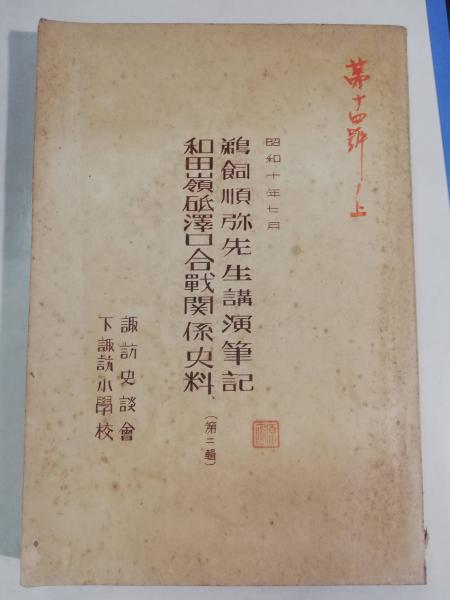 第十四號ノ上
昭和十年七月
鵜飼順弥先生講演筆記
和田嶺砥澤口合戰関係史料
(第二輯)
諏訪史談會
下諏訪小學校